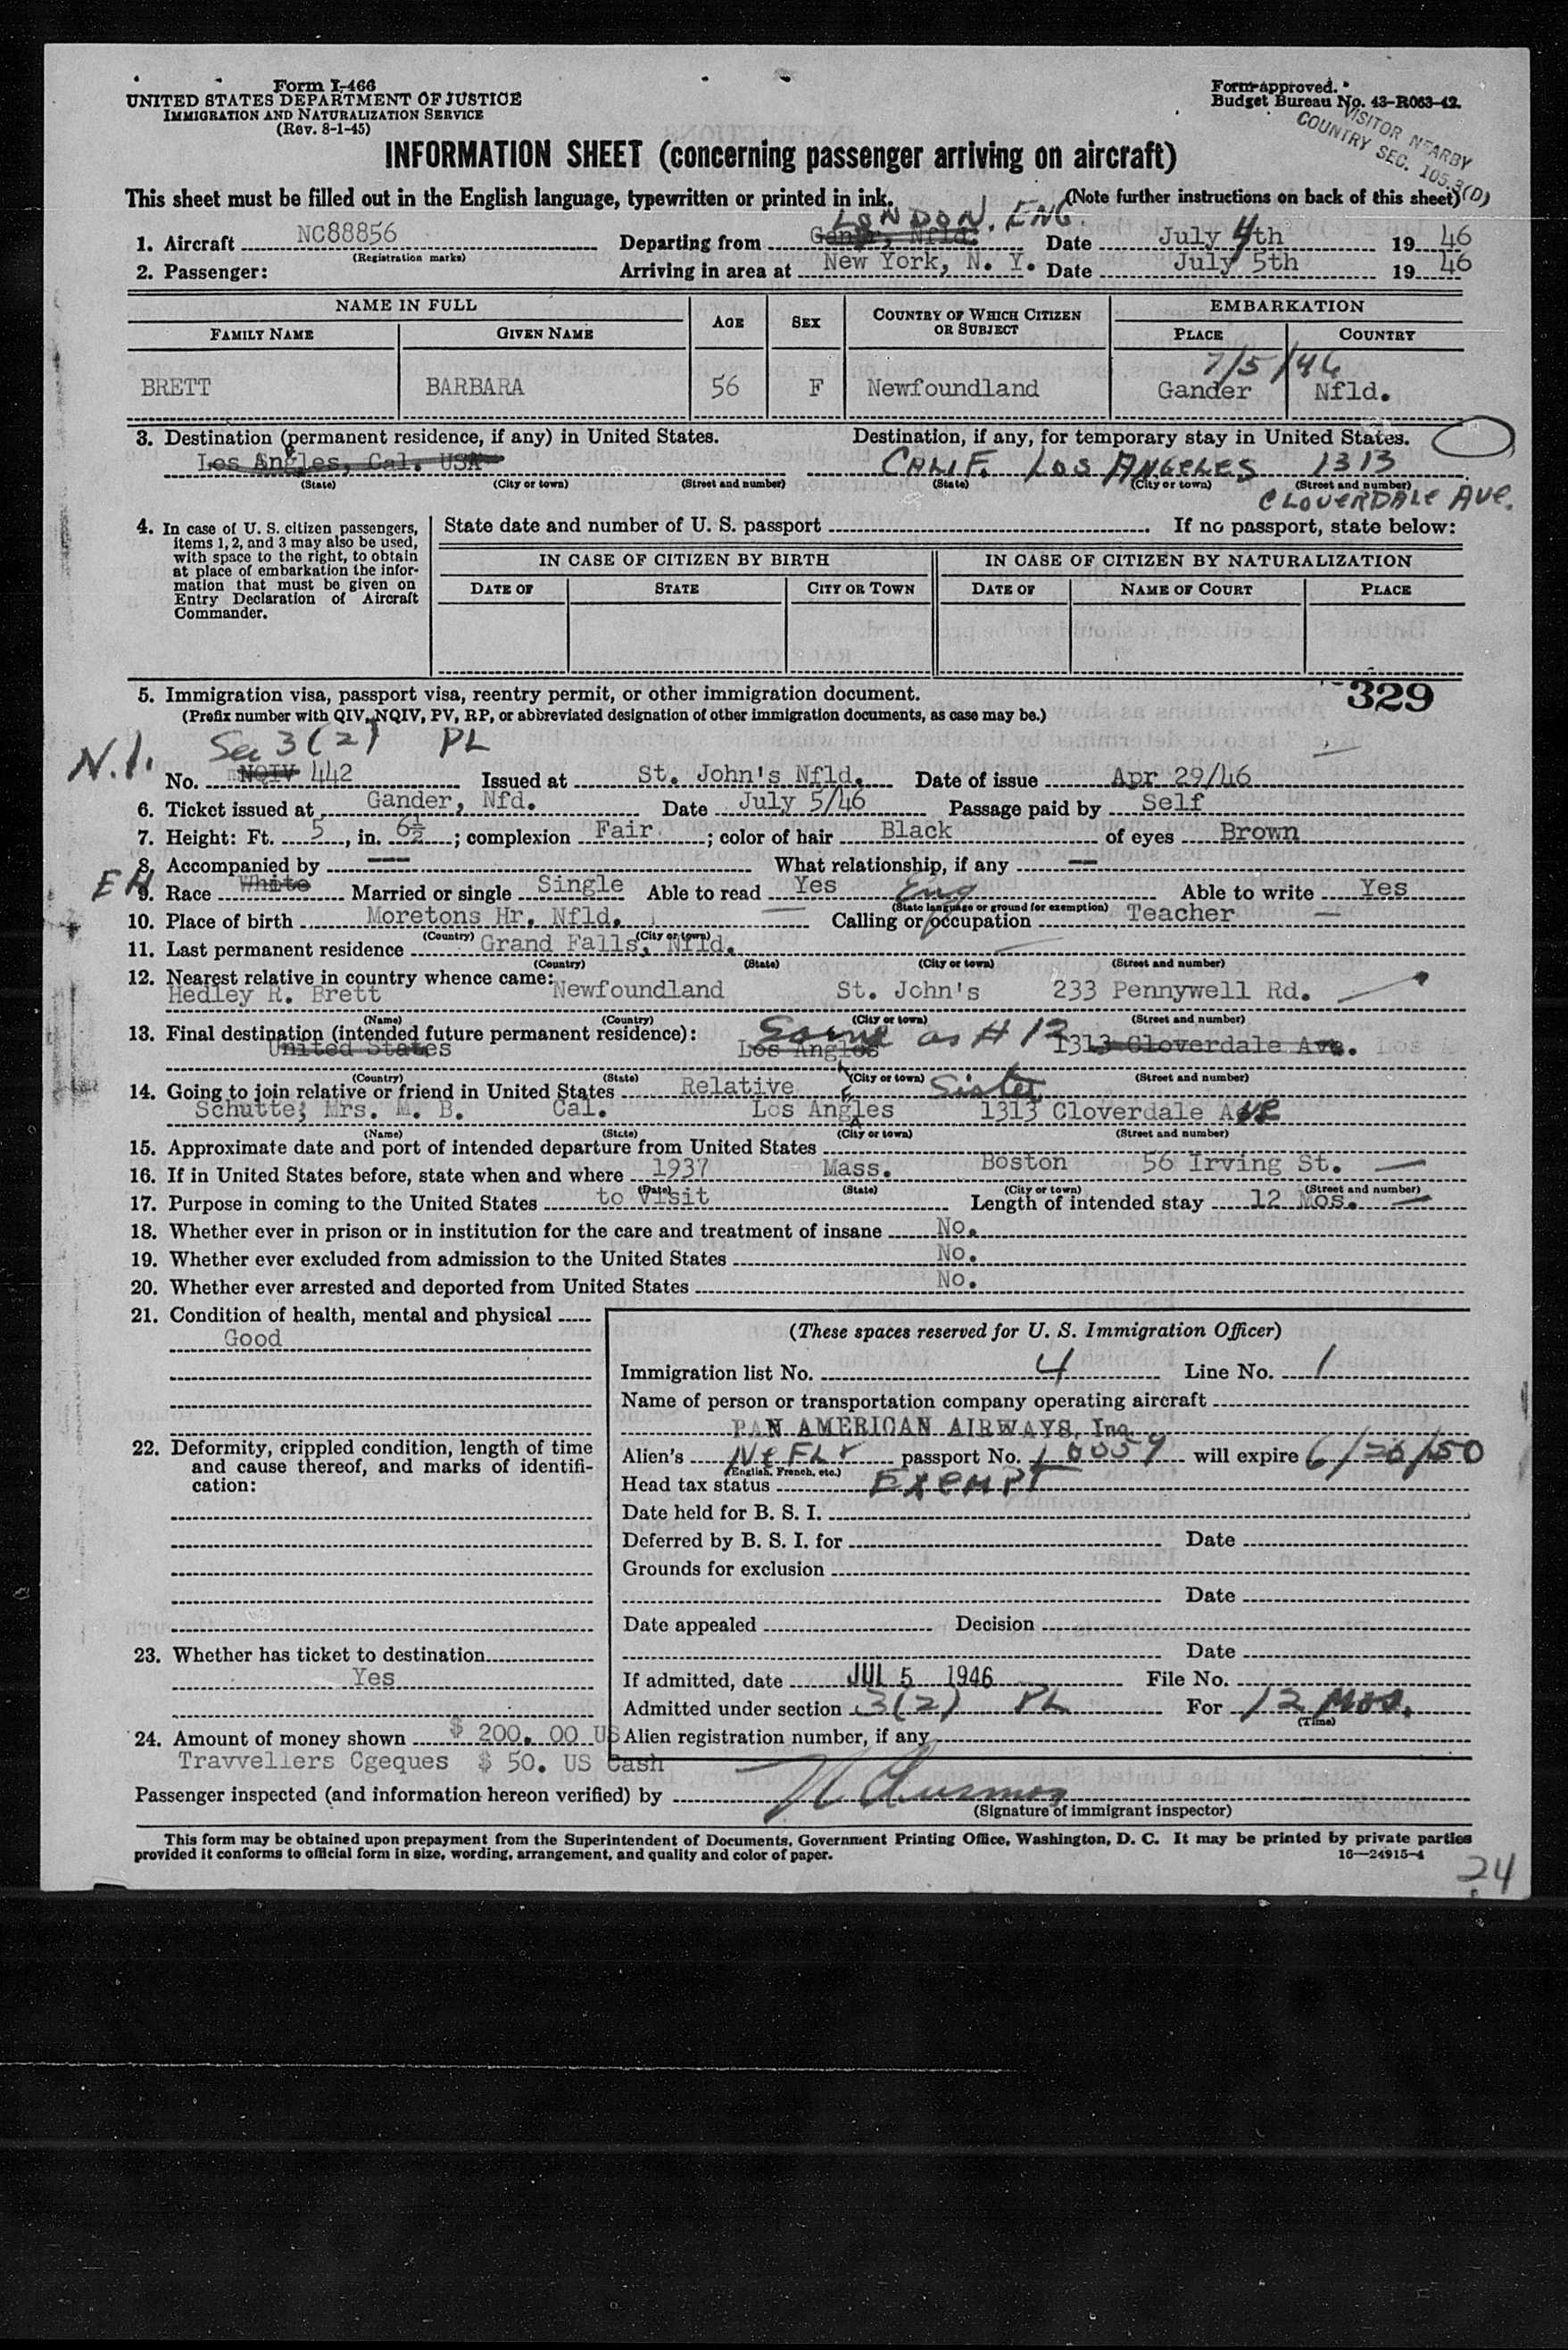 Form I-466
UNITED STATES DEPARTMENT OF JUSTICE
IMMIGRATION AND NATURALIZATION SERVICE
(Rev. 8-1-45)
Form approved.
Budget Bureau No. 43-R063-42.
VISITOR NEARBY
COUNTRY SEC. 105.3(D)
INFORMATION SHEET (concerning passenger arriving on aircraft)
This sheet must be filled out in the English language, typewritten or printed in ink. (Note further instructions on back of this sheet)
LONDON. ENG.
1. Aircraft NC88856 Departing from Gander, Nfld. Date July 4th 1946
(Registration marks)
2. Passenger: Arriving in area at New York, N. Y. Date July 5th 1946
NAME IN FULL AGE SEX COUNTRY OF WHICH CITIZEN OR SUBJECT EMBARKATION
FAMILY NAME GIVEN NAME PLACE COUNTRY
7/5/46
BRETT BARBARA 56 F Newfoundland Gander Nfld.
3. Destination (permanent residence, if any) in United States. Destination, if any, for temporary stay in United States.
Los Angles, Cal. USA CALIF. LOS ANGELES 1313
(State) (City or town) (Street and number) (State) (City or town) (Street and number)
CLOVERDALE AVE.
4. In case of U. S. citizen passengers, items 1, 2, and 3 may also be used, with space to the right, to obtain at place of embarkation the information that must be given on Entry Declaration of Aircraft Commander.
State date and number of U. S. passport . If no passport, state below:
IN CASE OF CITIZEN BY BIRTH IN CASE OF CITIZEN BY NATURALIZATION
DATE OF STATE CITY OR TOWN DATE OF NAME OF COURT PLACE
5. Immigration visa, passport visa, reentry permit, or other immigration document. 329
(Prefix number with QIV, NQIV, PV, RP, or abbreviated designation of other immigration documents, as case may be.)
N.I. Sec 3(2) PL
No. NQIV 442 Issued at St. John's Nfld. Date of issue Apr 29/46
6. Ticket issued at Gander, Nfd. Date July 5/46 Passage paid by Self
7. Height: Ft. 5, in. 6½; complexion Fair; color of hair Black of eyes Brown
8. Accompanied by --- What relationship, if any --
EN
9. Race White Married or single Single Able to read Yes Eng Able to write Yes
(State language or ground for exemption)
10. Place of birth Moretons Hr. Nfld. Calling or occupation Teacher
(Country) (City or town)
11. Last permanent residence Grand Falls, Nfld.
(Country) (State) (City or town) (Street and number)
12. Nearest relative in country whence came:
Hedley R. Brett Newfoundland St. John's 233 Pennywell Rd.
(Name) (Country) (City or town) (Street and number)
13. Final destination (intended future permanent residence): Same as # 12
United States Los Angles 1313 Cloverdale Ave.
(Country) (State) (City or town) (Street and number)
14. Going to join relative or friend in United States Relative Sister
Schutte, Mrs. M. B. Cal. Los Angles 1313 Cloverdale Ave
(Name) (State) (City or town) (Street and number)
15. Approximate date and port of intended departure from United States
16. If in United States before, state when and where 1937 Mass. Boston 56 Irving St.
(Date) (State) (City or town) (Street and number)
17. Purpose in coming to the United States to Visit Length of intended stay 12 Mos.
18. Whether ever in prison or in institution for the care and treatment of insane No.
19. Whether ever excluded from admission to the United States No.
20. Whether ever arrested and deported from United States No.
21. Condition of health, mental and physical
Good
22. Deformity, crippled condition, length of time and cause thereof, and marks of identification:
23. Whether has ticket to destination
Yes
24. Amount of money shown $ 200. 00 US
Travvellers Cgeques $ 50. US Cash
(These spaces reserved for U. S. Immigration Officer)
Immigration list No. 4 Line No. 1
Name of person or transportation company operating aircraft
PAN AMERICAN AIRWAYS, Inc.
Alien's passport No. will expire
(English, French, etc.)
Head tax status Exempt
Date held for B. S. I.
Deferred by B. S. I. for Date
Grounds for exclusion
Date
Date appealed Decision
Date
If admitted, date JUL 5 1946 File No.
Admitted under section 3(2) PL For 12 Mos.
(Time)
Alien registration number, if any
Passenger inspected (and information hereon verified) by
(Signature of immigrant inspector)
This form may be obtained upon prepayment from the Superintendent of Documents, Government Printing Office, Washington, D. C. It may be printed by private parties
provided it conforms to official form in size, wording, arrangement, and quality and color of paper. 16—24915-4
24